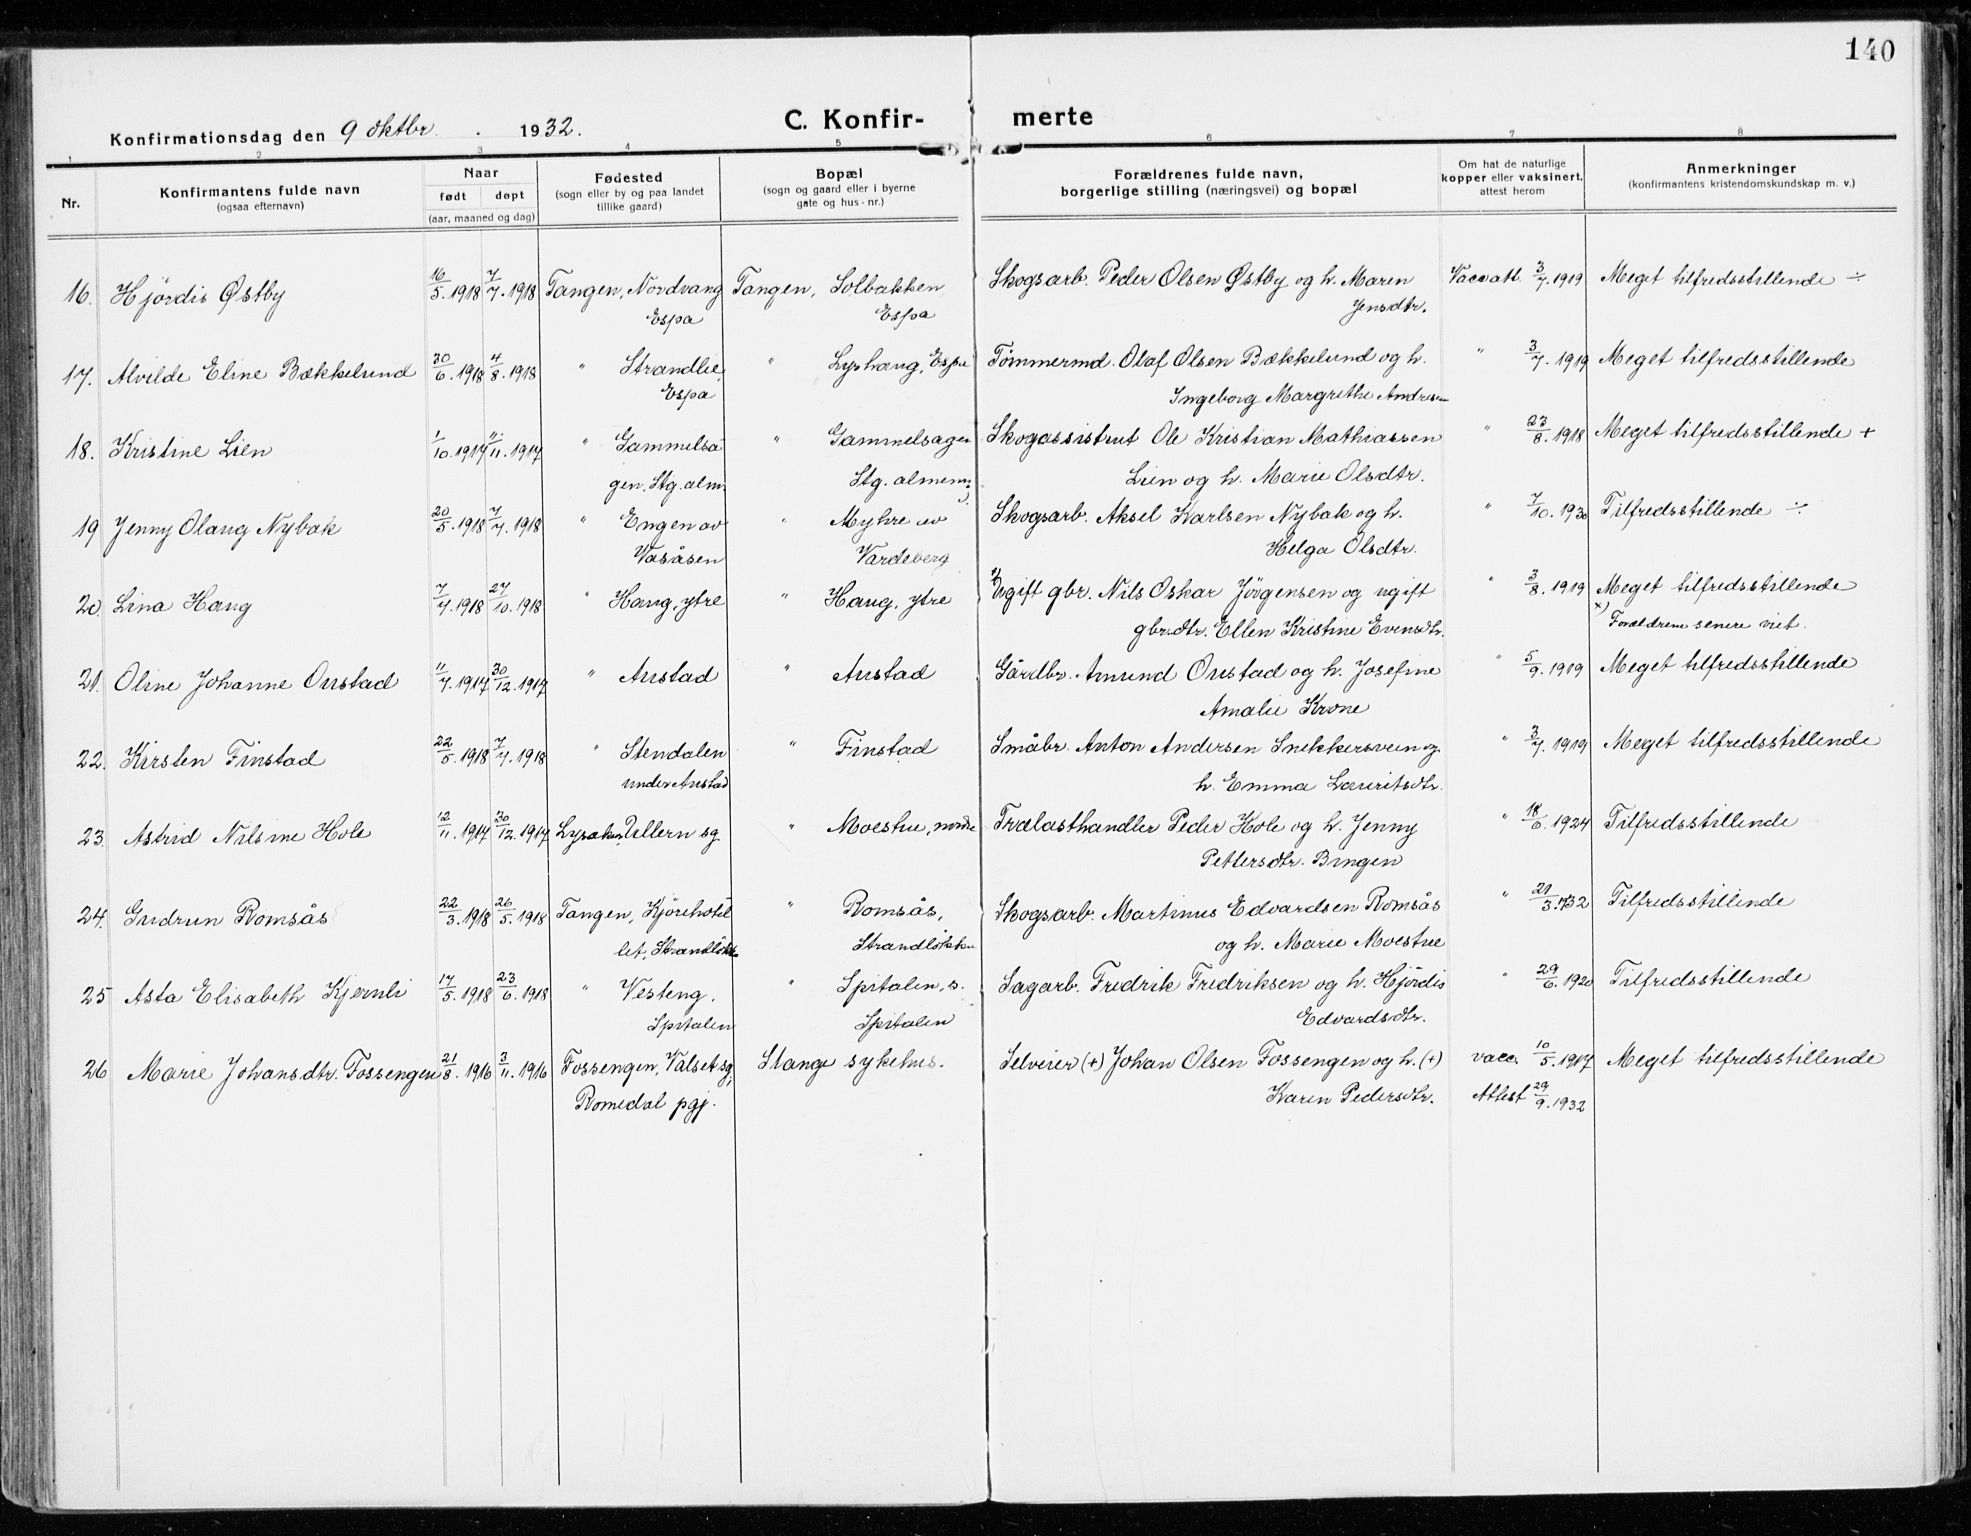 140
Konfirmationsdag den 9 oktbr. 1932. C. Konfirmerte
1 2 3 4 5 6 7 8
Nr. | Konfirmantens fulde navn (ogsaa efternavn) | Naar født døpt (aar, maaned og dag) | Fødested (sogn eller by og paa landet tillike gaard) | Bopæl (sogn og gaard eller i byerne gate og hus-nr.) | Forældrenes fulde navn, borgerlige stilling (næringsvei) og bopæl | Om hat de naturlige kopper eller vaksinert, attest herom | Anmerkninger (konfirmantens kristendomskundskap m. v.)
16. Hjördis Østby 16/5.1918 7/7.1918 Tangen, Nordvang Tangen, Solbakken Skogsarb. Peder Olsen Østby og h. Maren Vacc att. 3/7.1919 Meget tilfredsstillende ÷
Espa Espa Jensdtr.
17. Alvilde Eline Bækkelund 30/6.1918 4/8.1918 " Strandlie, " Lyshaug, Espa Tømmermd. Olaf Olsen Bækkelund og h. " 3/7.1919 Meget tilfredsstillende
Espa Ingeborg Margrethe Andresen
18. Kristine Lien 1/10.1917 11/11.1917 " Gammelsa- " Gammelsagen Skogassistent Ole Kristian Mathiassen " 23/8.1918 Meget tilfredsstillende +
gen. Stg. alm. Stg. almenn. Lien og h. Marie Olsdtr.
19 Jenny Olaug Nybak 20/5.1918 7/7.1918 " Engen av " Myhre av Skogsarb. Aksel Karlsen Nybak og h. " 7/10.1930 Tilfredsstillende ÷
Vasåsen Vardeberg Helga Olsdtr.
20. Lina Haug 7/7.1918 27/10.1918 " Haug, ytre " Haug, ytre x) Ugift gbr. Nils Oskar Jörgensen og ugift " 3/8.1919 Meget tilfredsstillende
gbr.dtr. Ellen Kristine Evensdtr. x) Forældrene senere viet.
21. Oline Johanne Onstad 11/7.1917 30/12.1917 " Anstad " Anstad Gårdbr. Amund Onstad og h. Josefine " 5/9.1919 Meget tilfredsstillende
Amalie Krone
22. Kirsten Finstad 22/5.1918 7/7.1918 " Stendalen " Finstad Småbr. Anton Andersen Snekkersveen og " 3/7.1919 Meget tilfredsstillende
under Anstad h. Emma Lauritsdtr.
23. Astrid Nilsine Hole 12/11.1917 30/12.1917 Lysaker, Ullern sg. " Moestue, nordre Trælasthandler Peder Hole og h. Jenny " 18/6.1924 Tilfredsstillende
Pettersdtr. Bingen
24. Gudrun Romsås 22/3.1918 26/5.1918 Tangen, Kjörehotel- " Romsås, Skogsarb. Martinus Edvardsen Romsås " 21/3.1932 Tilfredsstillende
let, Strandløkk. Strandlökken og h. Marie Moestue
25 Asta Elisabeth Kjernli 17/5.1918 23/6.1918 " Vesteng. " Spitalen, s. Sagarb. Fredrik Fredriksen og h. Hjördis " 29/6.1920 Tilfredsstillende
Spitalen Spitalen Edvardsdtr.
26 Marie Johansdtr. Fossengen 21/8.1916 3/11.1916 Fossengen, Valset sg, Stange sykehus. Selveier (+) Johan Olsen Fossengen og h. (+) vacc. 10/5.1917 Meget tilfredsstillende
Romedal pgj. Karen Pedersdtr. Attest 29/9.1932